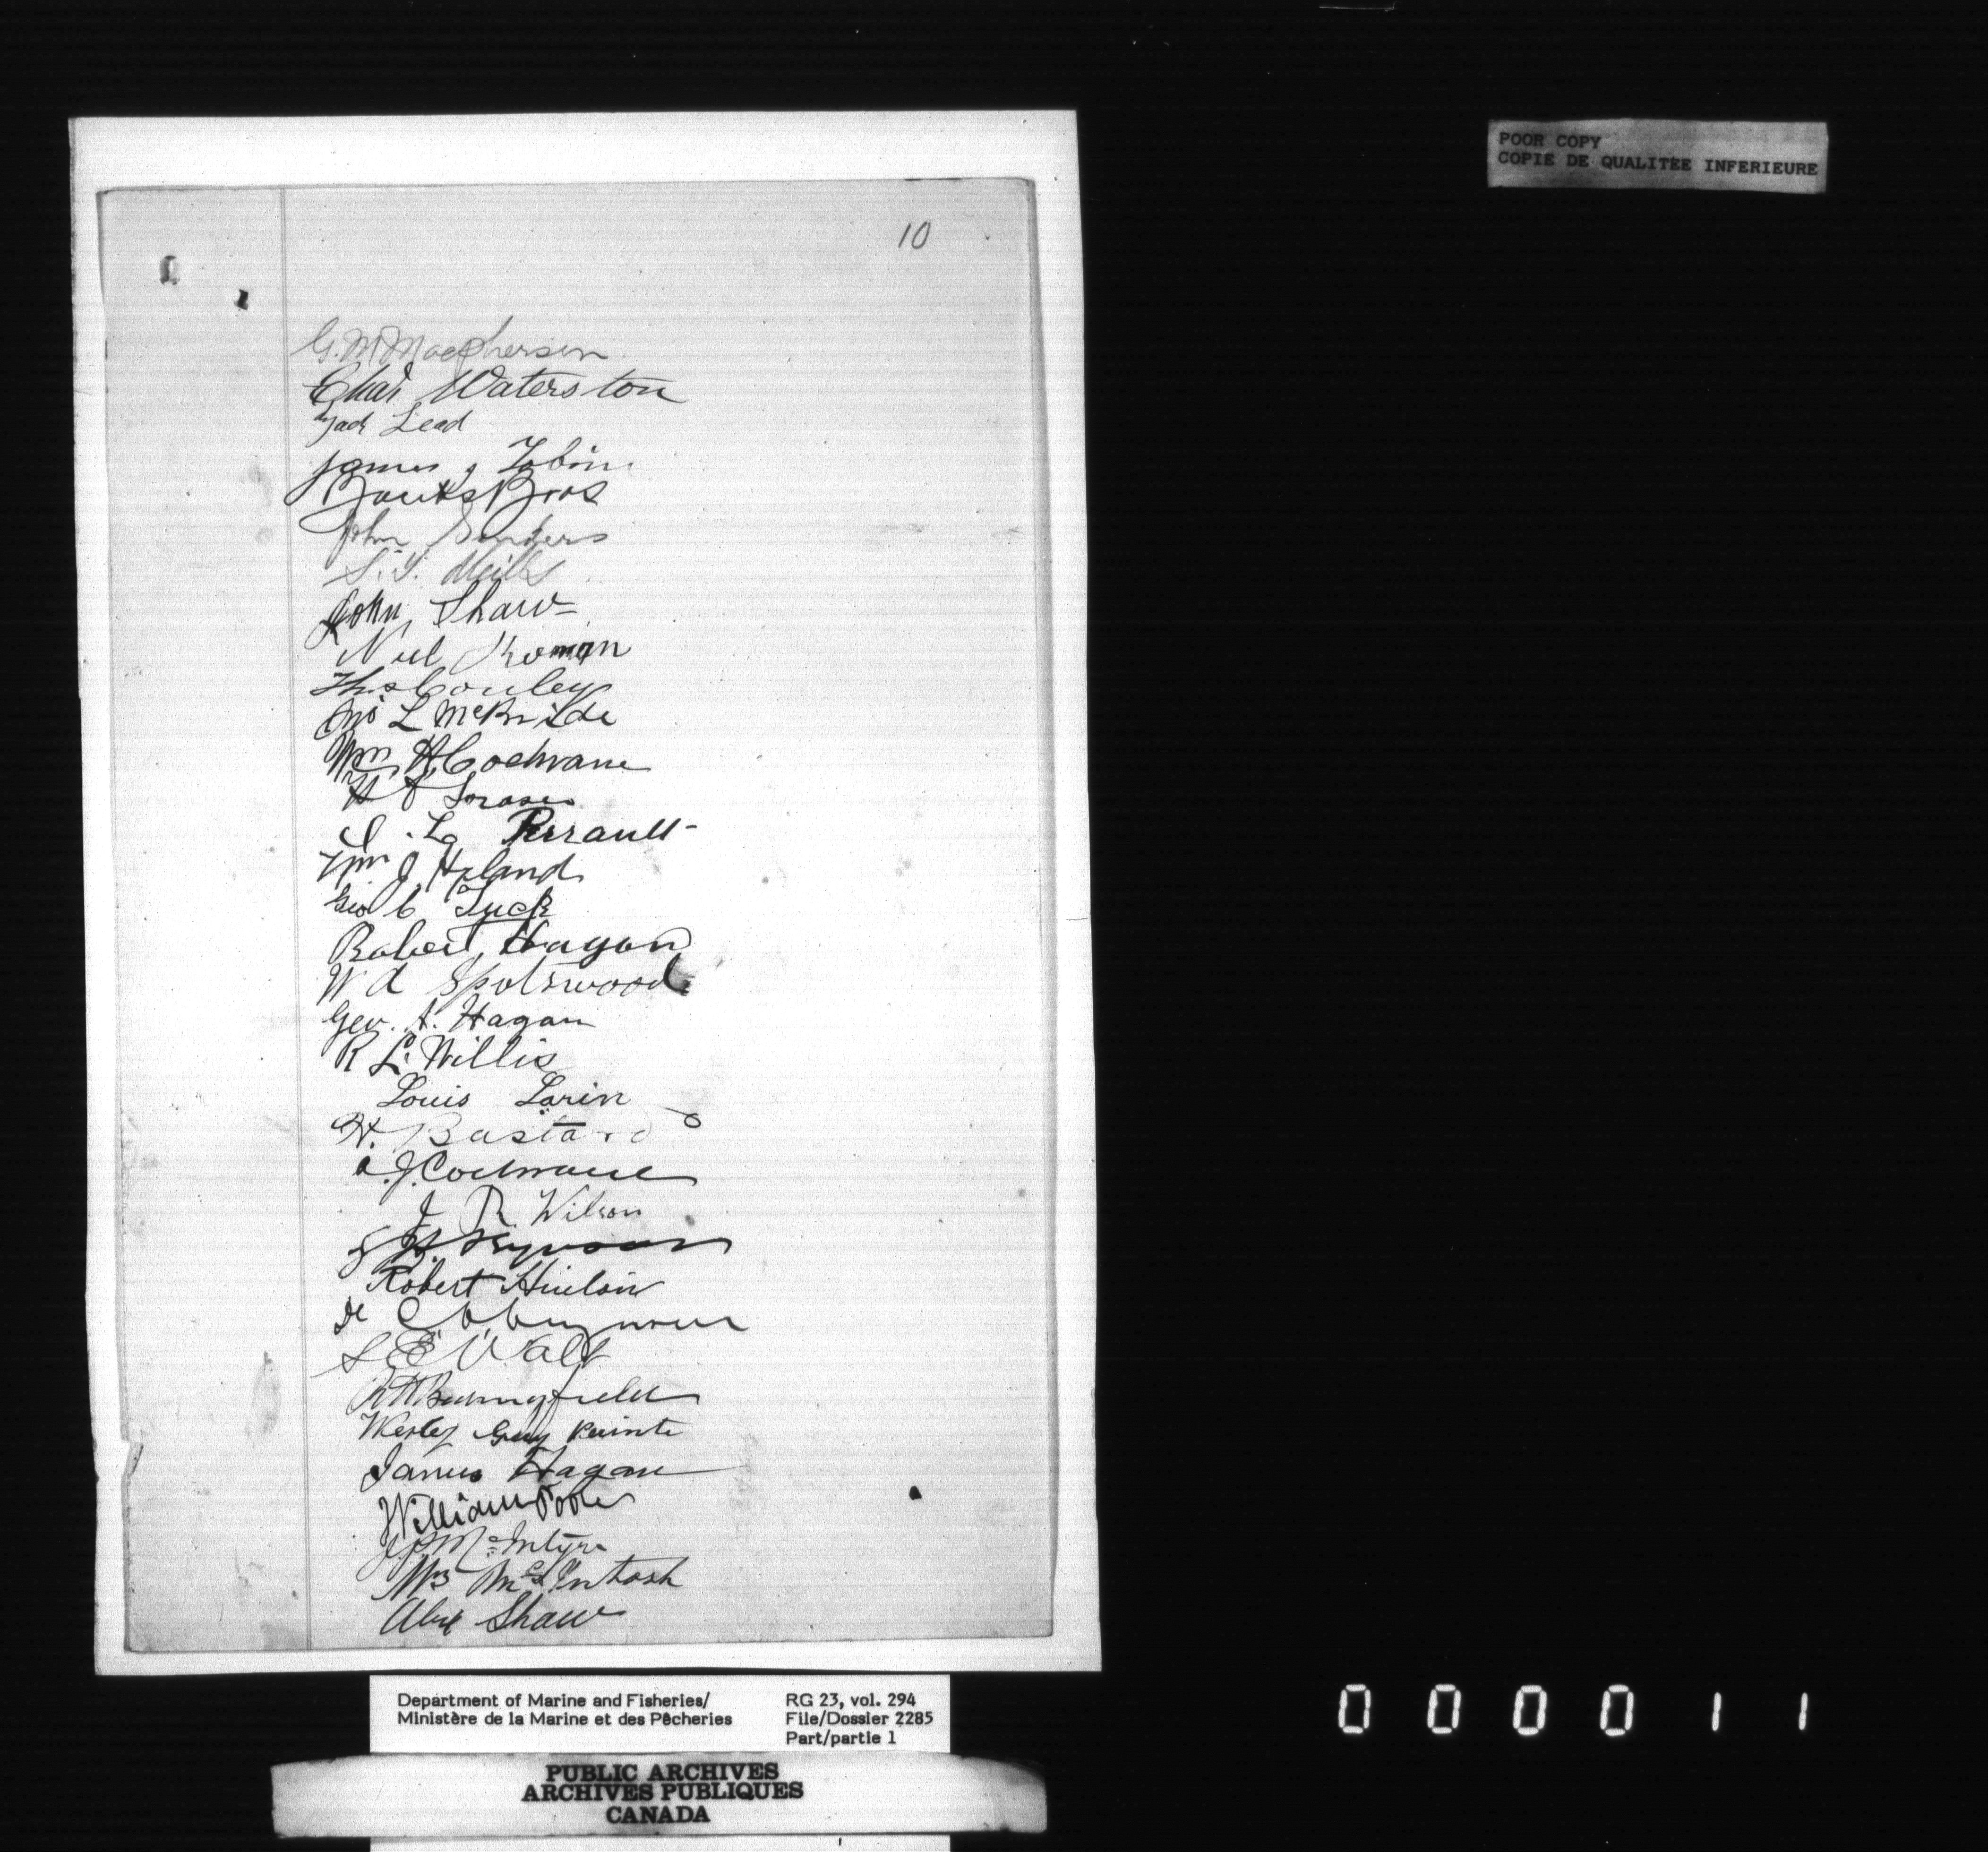 POOR COPY
COPIE DE QUALITEE INFERIEURE
10
G. M Macpherson
Chas Waterston
Jack Lead
James J Tobin
Banks Bros
John Sanders
S. Y. Mills
John Shaw
Neil Homan
Thos Conley
Jno L McBride
Wm H Cochrane
H
Perrault
Wm J Hyland
Geo C Tuck
Robert Hagan
W d Spotswood
Geo. A. Hagan
R L. Willis
Louis Larin
H. Bastard
A. J. Cochrane
J R Wilson
Robert Hinton
De
S E Wall
Wesley Guy Pointe
James Hagan
William Poole
J. P. McIntyre
McIntosh
Alex Shaw
Department of Marine and Fisheries/
Ministère de la Marine et des Pêcheries
RG 23, vol. 294
File/Dossier 2285
Part/partie 1
PUBLIC ARCHIVES
ARCHIVES PUBLIQUES
CANADA
000011